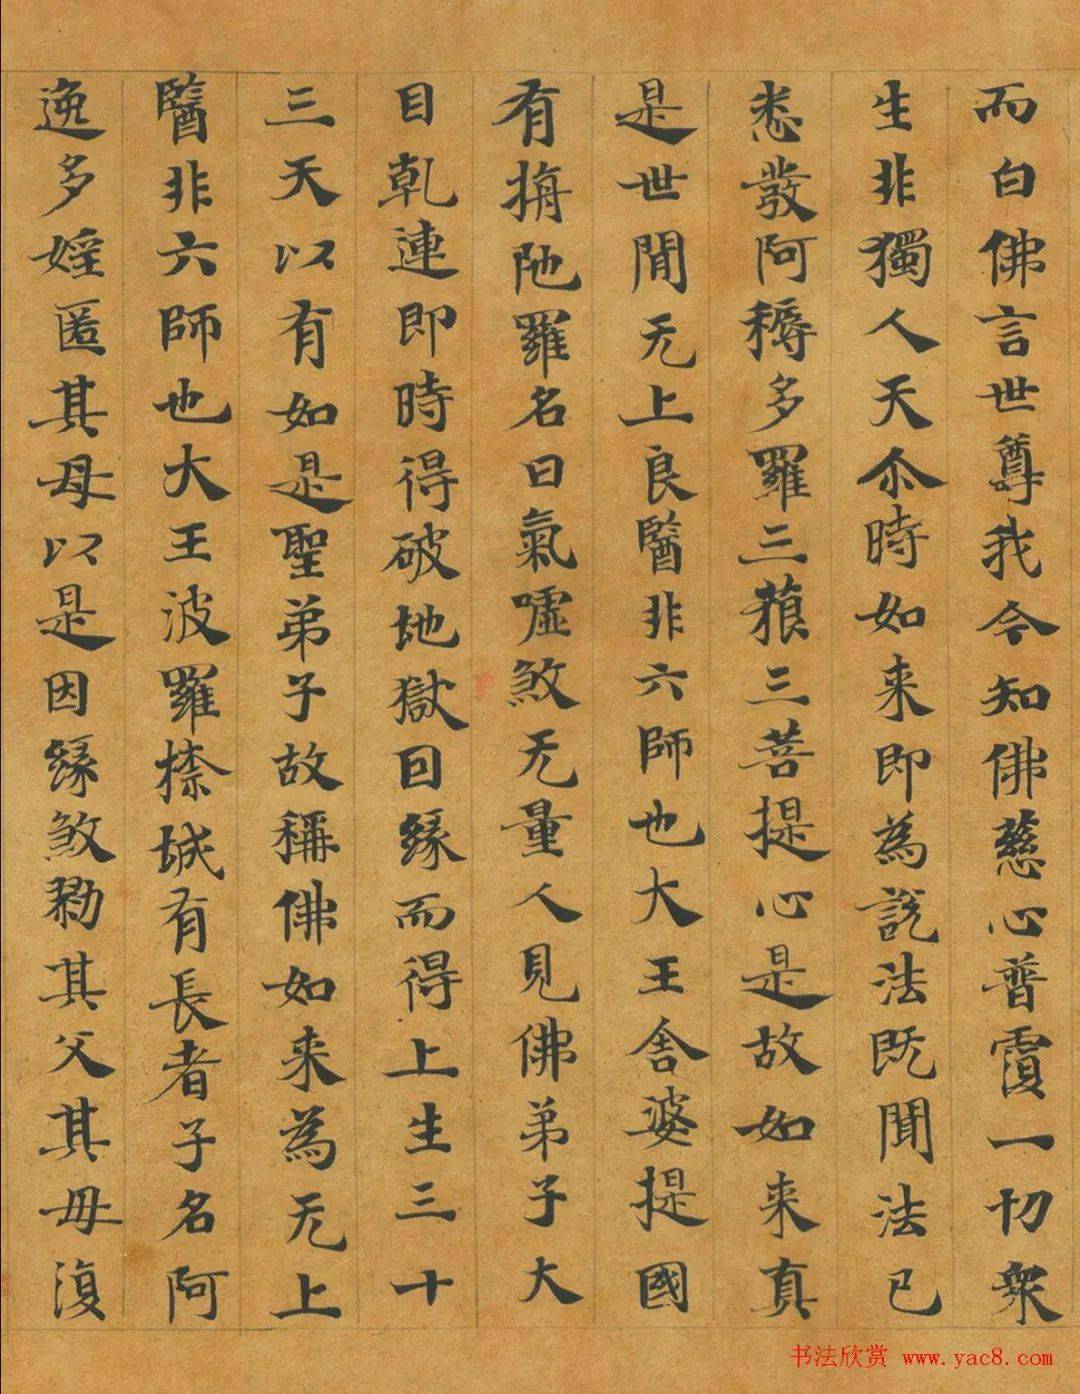 而白佛言世尊我今知佛慈心普覆一切衆
生非獨人天尒時如来即為說法既聞法已
悉發阿耨多羅三藐三菩提心是故如来真
是世間无上良醫非六師也大王舍婆提國
有旃陁羅名曰氣嘘煞无量人見佛弟子大
目乹連即時得破地獄因緣而得上生三十
三天以有如是聖弟子故稱佛如来為无上
醫非六師也大王波羅㮈城有長者子名阿
逸多婬匿其母以是因緣煞勠其父其母復
书法欣赏 www.yac8.com